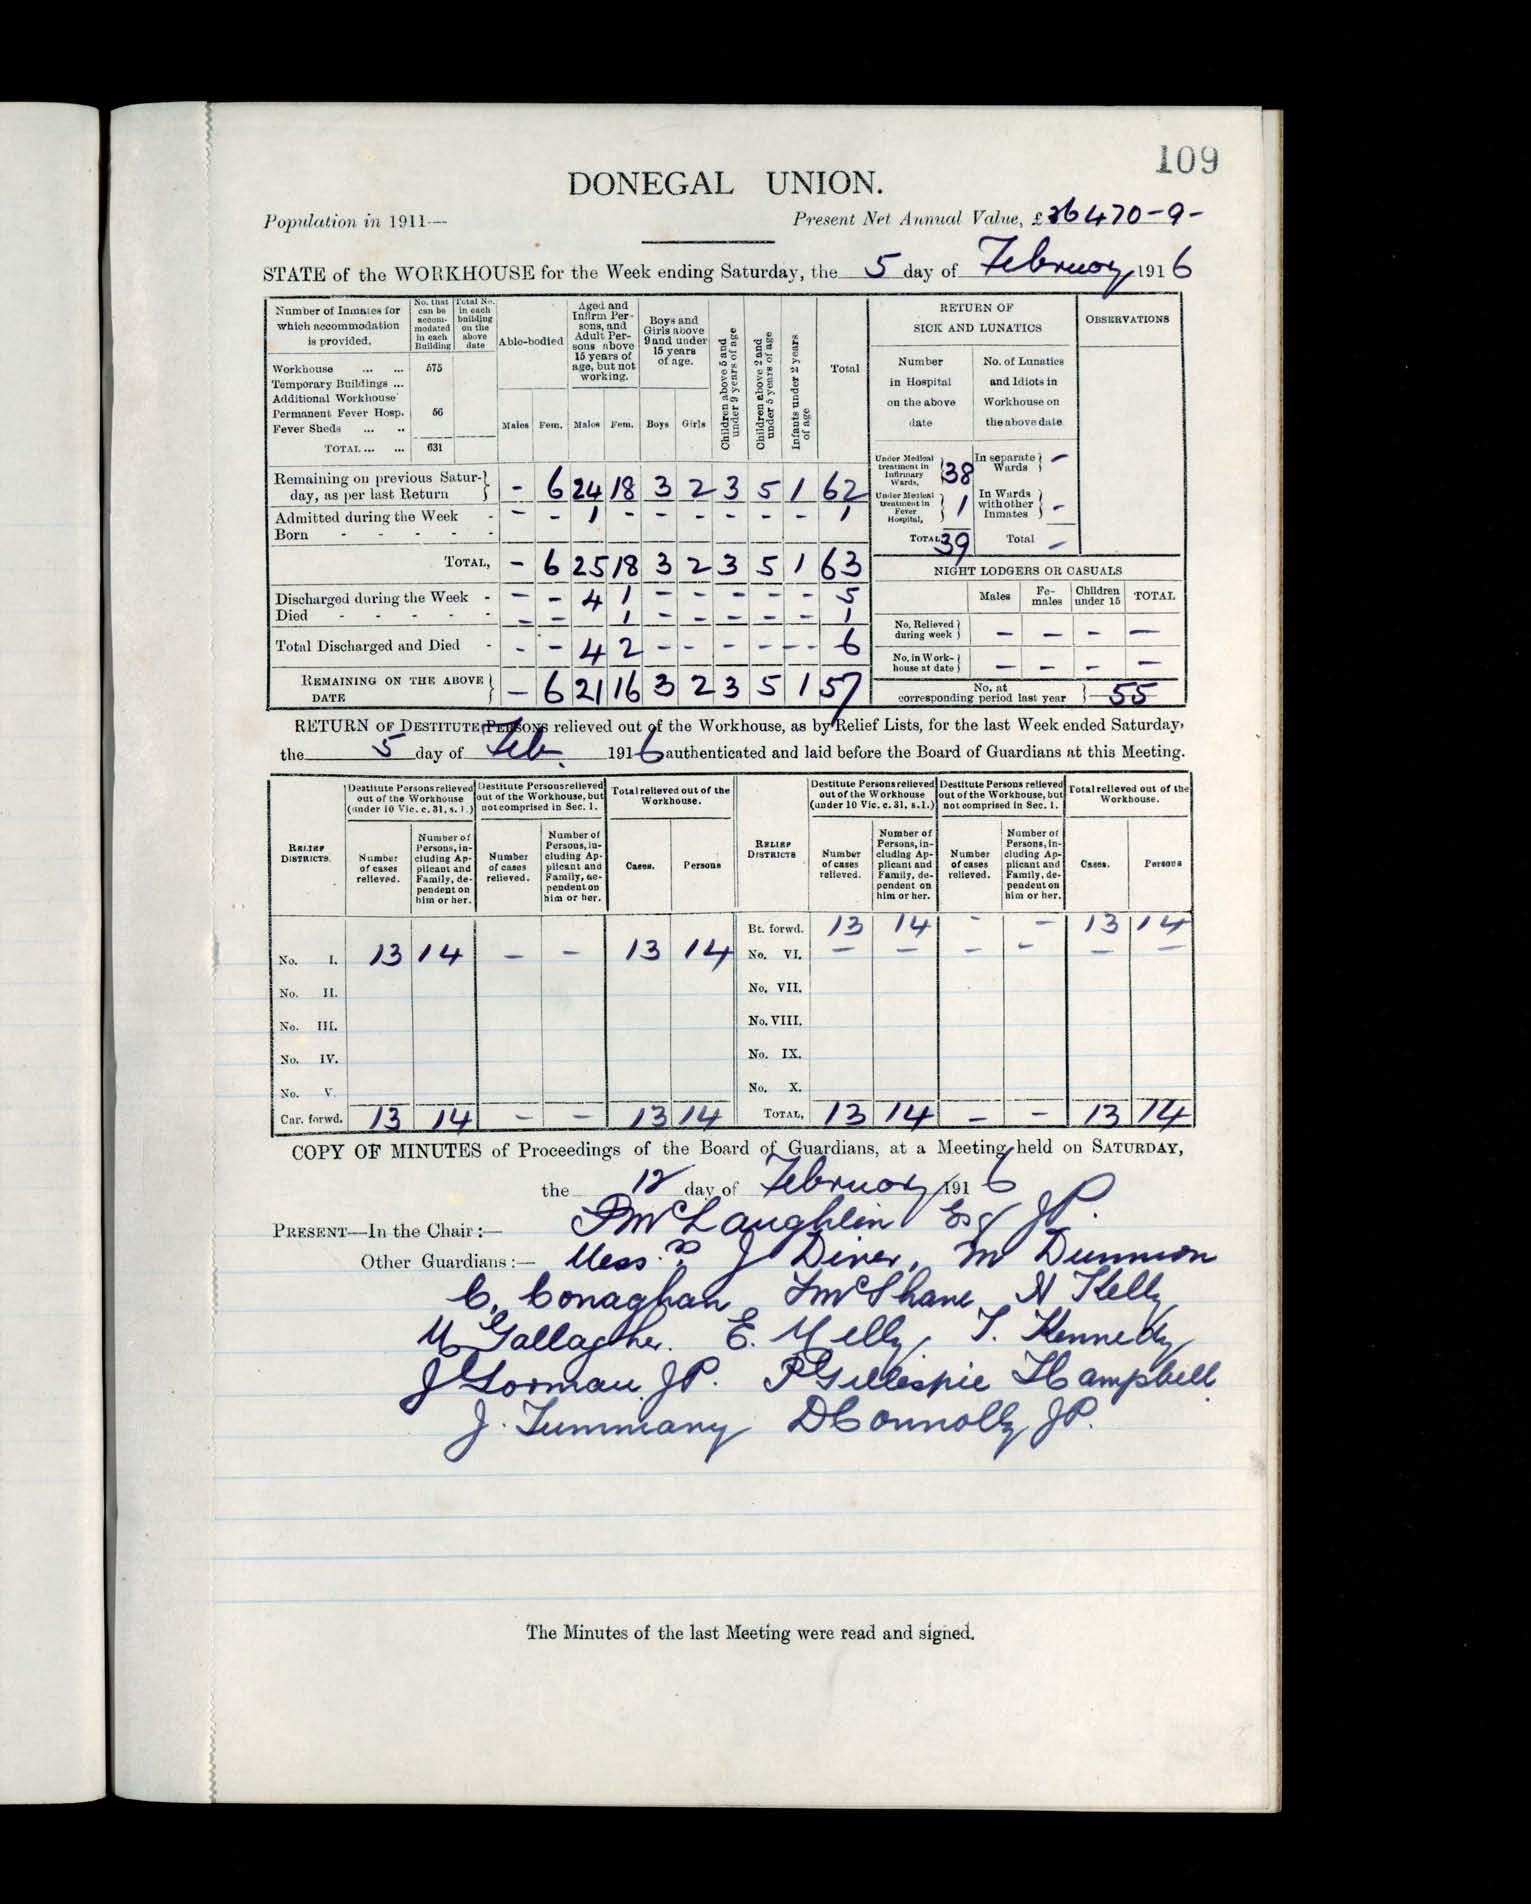 109
DONEGAL UNION.
Population in 1911—
Present Net Annual Value, £36470-9-
STATE of the WORKHOUSE for the Week ending Saturday, the 5 day of February 1916
Number of Inmates for which accommodation is provided. | No. that can be accommodated in each Building | Total No. in each building on the above date | Able-bodied | Aged and Infirm Persons, and Adult Persons above 15 years of age, but not working. | Boys and Girls above 9 and under 15 years of age. | Children above 5 and under 9 years of age | Children above 2 and under 5 years of age | Infants under 2 years of age | Total
Males | Fem. | Males | Fem. | Boys | Girls
Workhouse ... ... 575
Temporary Buildings ...
Additional Workhouse
Permanent Fever Hosp. 56
Fever Sheds ... ..
TOTAL ... ... 631
Remaining on previous Saturday, as per last Return } - 6 24 18 3 2 3 5 1 62
Admitted during the Week - - - 1 - - - - - - 1
Born - - - - -
TOTAL, - 6 25 18 3 2 3 5 1 63
Discharged during the Week - - - 4 1 - - - - - 5
Died - - - - - - - 1 - - - - - 1
Total Discharged and Died - - - 4 2 - - - - - - 6
REMAINING ON THE ABOVE DATE } - 6 21 16 3 2 3 5 1 57
RETURN OF SICK AND LUNATICS
OBSERVATIONS
Number in Hospital on the above date
No. of Lunatics and Idiots in Workhouse on the above date
Under Medical treatment in Infirmary Wards, } 38
In separate Wards } -
Under Medical treatment in Fever Hospital, } 1
In Wards with other Inmates } -
TOTAL 39
Total -
NIGHT LODGERS OR CASUALS
Males | Females | Children under 15 | TOTAL
No. Relieved during week } - - - -
No. in Workhouse at date } - - - -
No. at corresponding period last year } 55
RETURN OF DESTITUTE PERSONS relieved out of the Workhouse, as by Relief Lists, for the last Week ended Saturday,
the 5 day of Feb. 1916 authenticated and laid before the Board of Guardians at this Meeting.
RELIEF DISTRICTS. | Destitute Persons relieved out of the Workhouse (under 10 Vic. c. 31, s. 1.) | Destitute Persons relieved out of the Workhouse, but not comprised in Sec. 1. | Total relieved out of the Workhouse.
Number of cases relieved. | Number of Persons, including Applicant and Family, dependent on him or her. | Number of cases relieved. | Number of Persons, including Applicant and Family, dependent on him or her. | Cases. | Persons
No. I. 13 14 - - 13 14
No. II.
No. III.
No. IV.
No. V.
Car. forwd. 13 14 - - 13 14
RELIEF DISTRICTS | Destitute Persons relieved out of the Workhouse (under 10 Vic. c. 31, s.1.) | Destitute Persons relieved out of the Workhouse, but not comprised in Sec. 1. | Total relieved out of the Workhouse.
Number of cases relieved. | Number of Persons, including Applicant and Family, dependent on him or her. | Number of cases relieved. | Number of Persons, including Applicant and Family, dependent on him or her. | Cases. | Persons
Bt. forwd. 13 14 - - 13 14
No. VI. - - - - - -
No. VII.
No. VIII.
No. IX.
No. X.
TOTAL, 13 14 - - 13 14
COPY OF MINUTES of Proceedings of the Board of Guardians, at a Meeting held on SATURDAY,
the 12 day of February 1916
PRESENT—In the Chair:— P McLaughlin Esq JP.
Other Guardians:— Messrs J Diver, M Dunnion
C. Conaghan McShane H Kelly
M Gallagher. E. Melly, T. Kennedy
J Gorman JP. P Gillespie Campbell
J. Timmany D Connolly JP.
The Minutes of the last Meeting were read and signed.